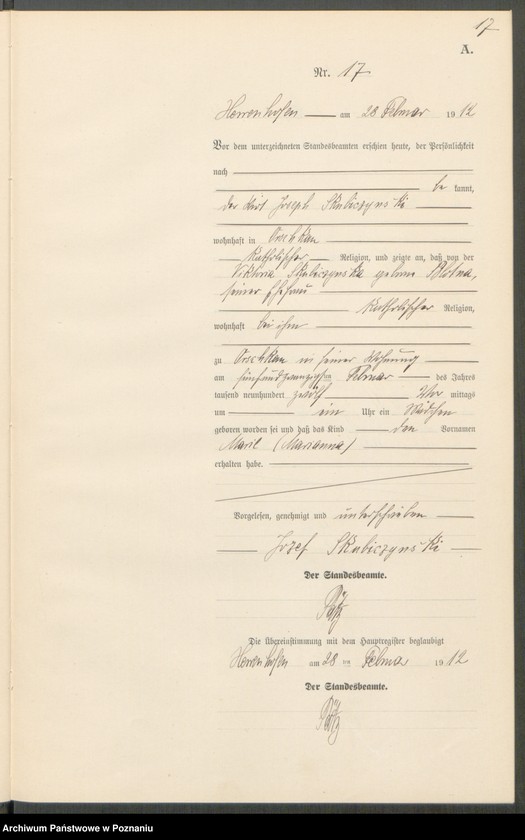 17
A.
Nr. 17
Herrenhofen am 28 Februar 1912
Vor dem unterzeichneten Standesbeamten erschien heute, der Persönlichkeit
nach
be kannt,
der Joseph Skubiczynski
wohnhaft in
katholischer Religion, und zeigte an, daß von der
Viktoria Skubiczynska geborne
seiner Ehefrau
katholischer Religion,
wohnhaft bei ihm
zu in seiner Wohnung
am fünfundzwanzigsten Februar des Jahres
tausend neunhundert zwölf mittags
um ein Uhr ein Mädchen
geboren worden sei und daß das Kind den Vornamen
(Marianna)
erhalten habe.
Vorgelesen, genehmigt und unterschrieben
Jozef Skubiczynski
Der Standesbeamte.
Die Übereinstimmung mit dem Hauptregister beglaubigt
Herrenhofen am 28 ten Februar 1912
Der Standesbeamte.
Archiwum Państwowe w Poznaniu